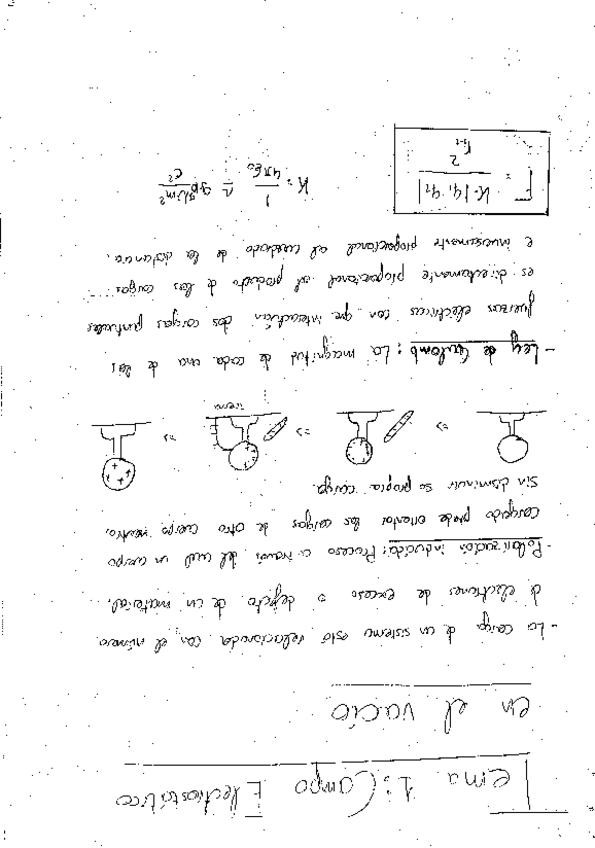 Tema 1: Campo Electrostático
en el vacío
- La carga de un sistema está relacionada con el número
de electrones de exceso o defecto de un material.
- Polarización inducida: Proceso a través del cual un cuerpo
cargado puede orientar las cargas de otro cuerpo neutro,
sin disminuir su propia carga.
=> => =>
tierra
- Ley de Coulomb: La magnitud de cada una de las
fuerzas eléctricas con que interactúan dos cargas puntuales
es directamente proporcional al producto de las cargas
e inversamente proporcional al cuadrado de la distancia.
F = K·|q₁·q₂| / r₁₋₂² K = 1/4πε₀